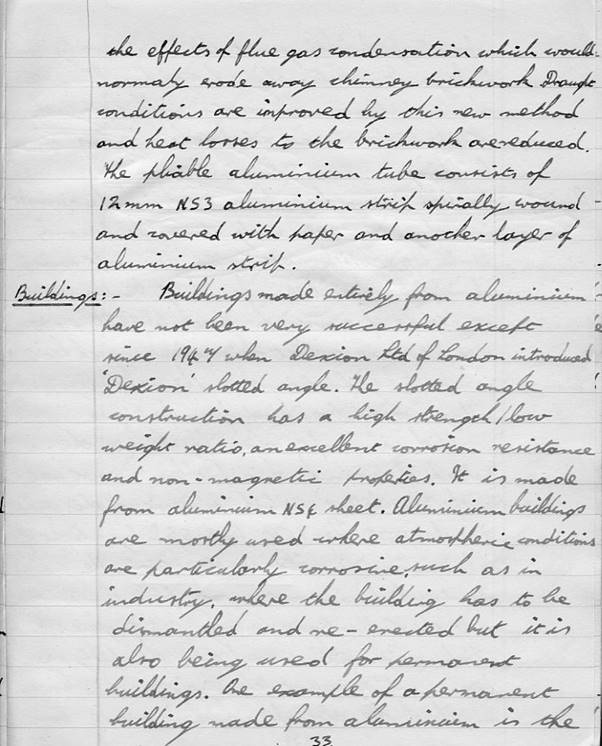 the effects of flue gas condensation which would
normaly erode away chimney brickwork. Draught
conditions are improved by this new method
and heat losses to the brickwork are reduced.
The pliable aluminium tube consists of
12mm NS3 aluminium strip spirally wound
and covered with paper and another layer of
aluminium strip.
Buildings:- Buildings made entirely from aluminium
have not been very successful except
since when Dexion Ltd of London introduced
'Dexion' slotted angle. The slotted angle
construction has a high strength/low
weight ratio, an excellent corrosion resistance
and non-magnetic properties. It is made
from aluminium sheet. Aluminium buildings
are mostly used where atmospheric conditions
are particularly corrosive, such as in
industry, where the building has to be
dismantled and re-erected but it is
also being used for permanent
buildings. One example of a permanent
building made from aluminium is the
33